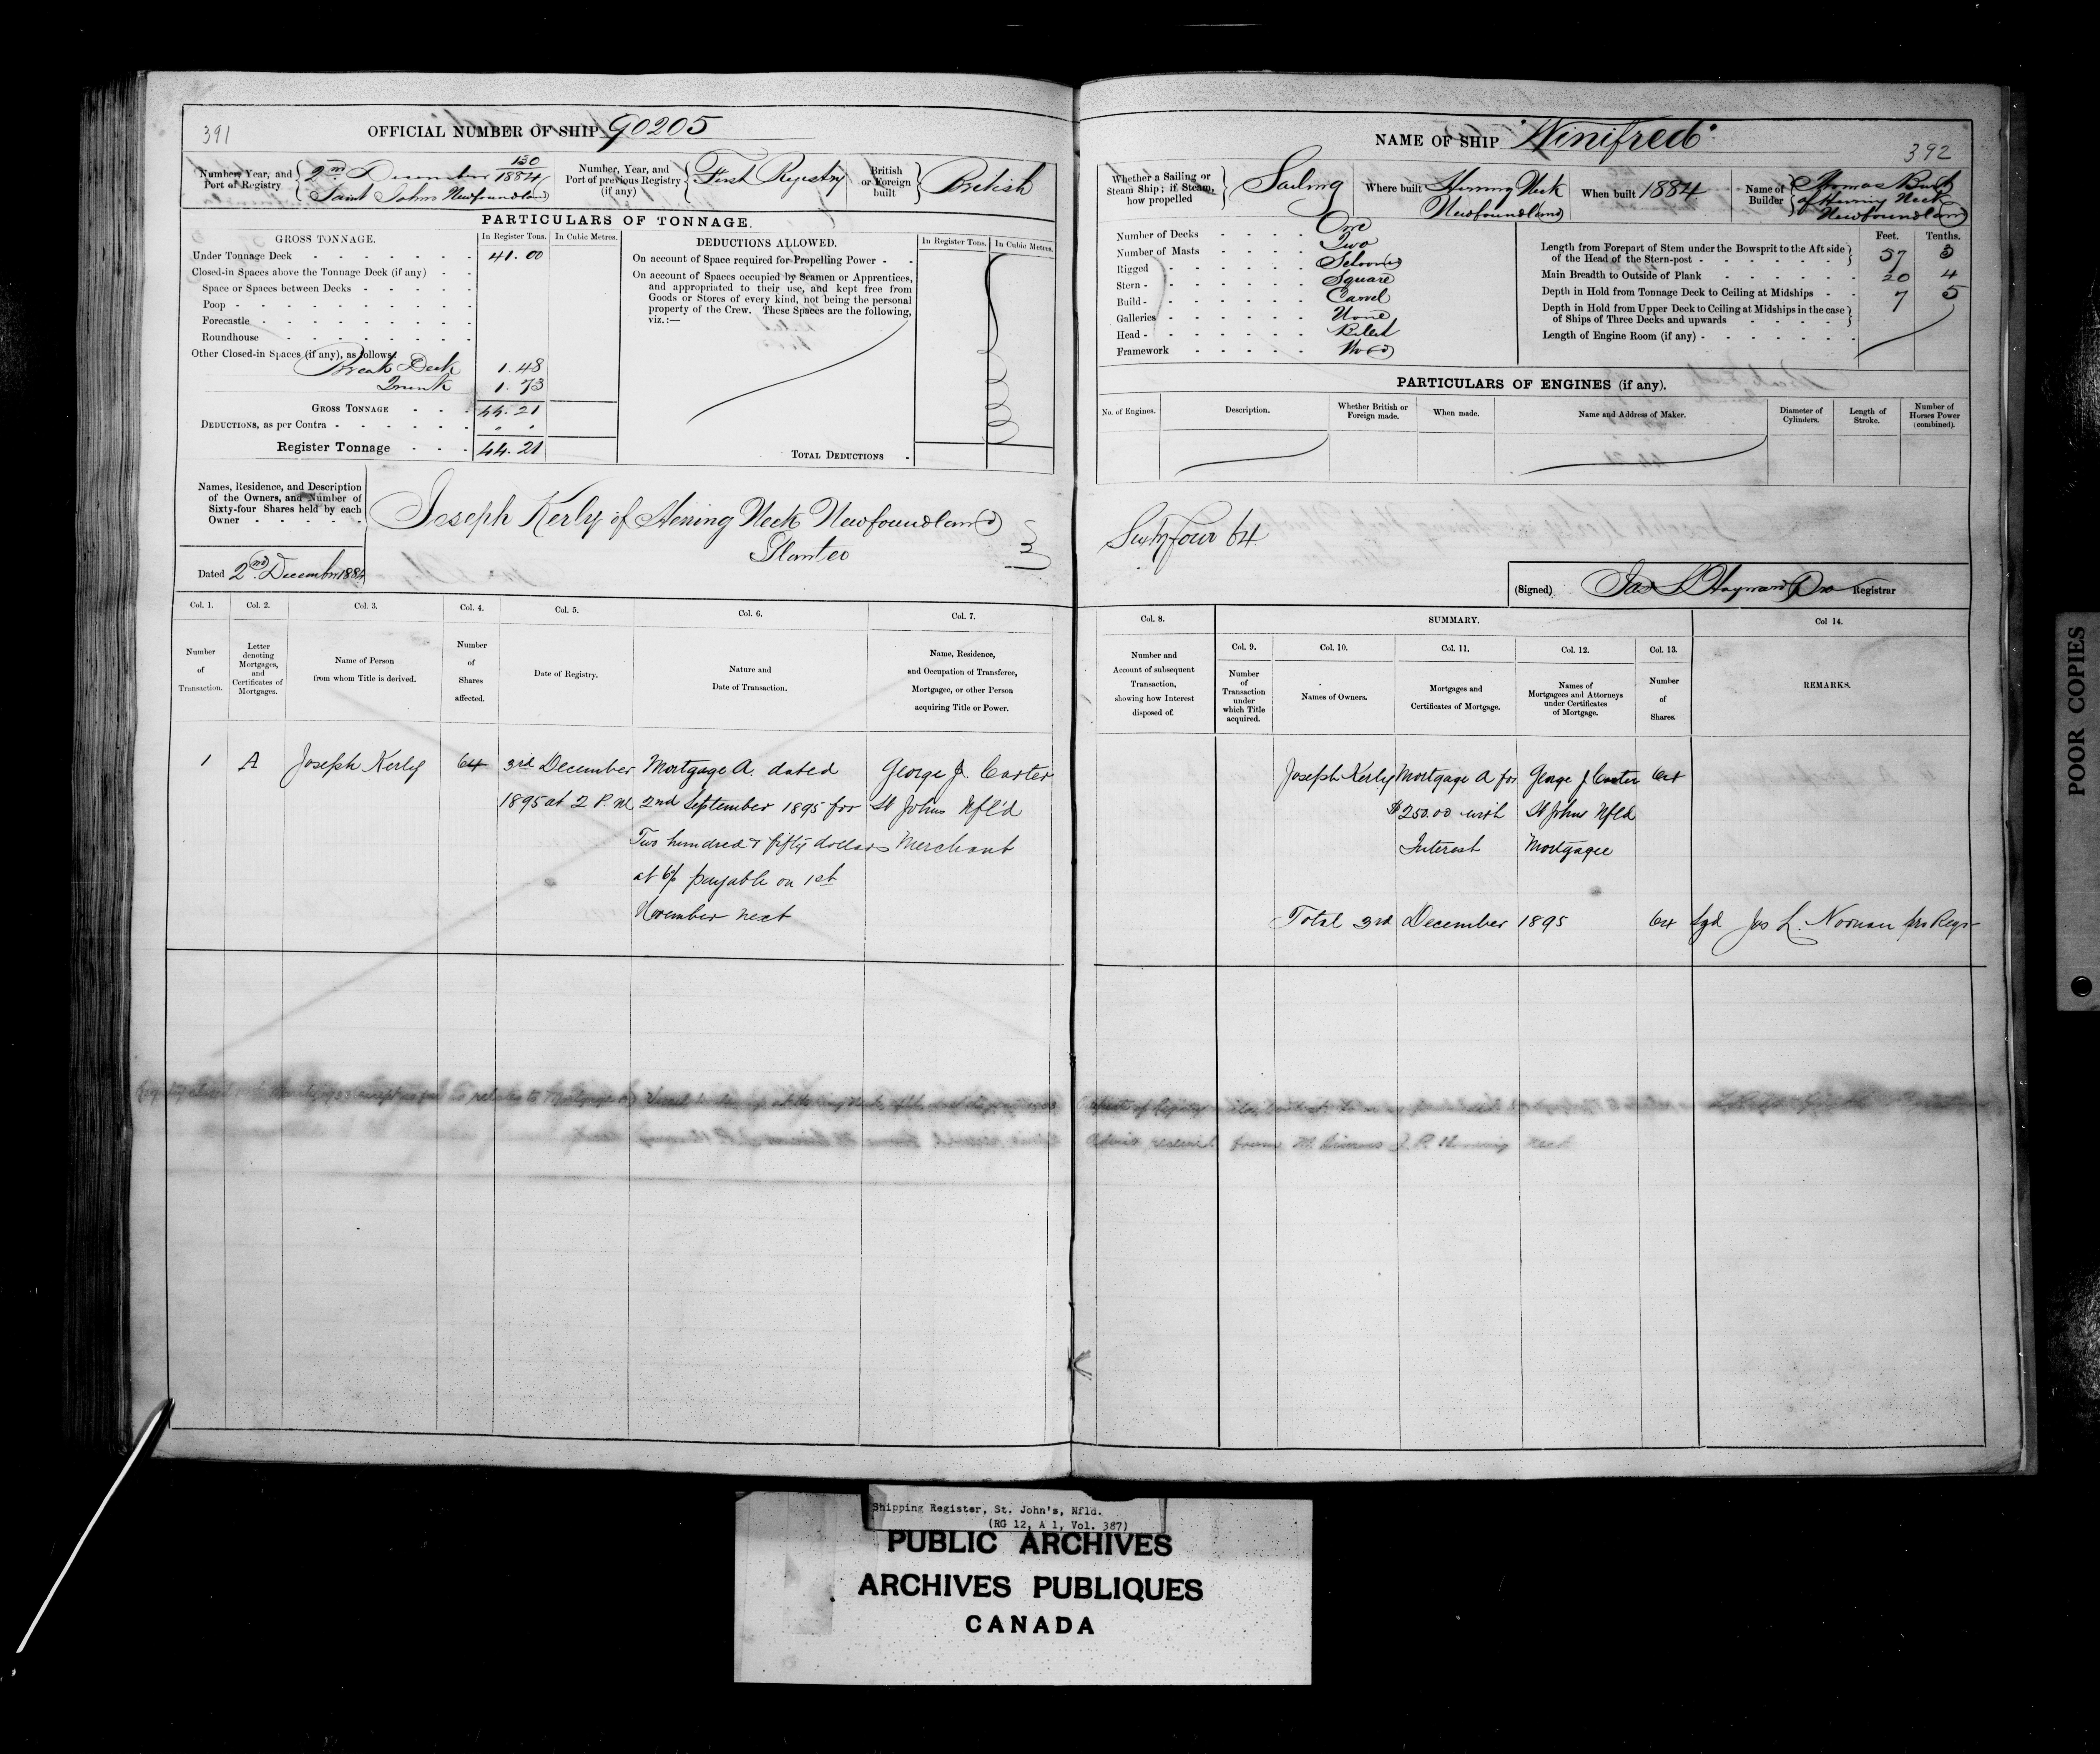 391
OFFICIAL NUMBER OF SHIP 90205
Number, Year, and Port of Registry
130
2nd December 1884
Saint Johns Newfoundland
Number, Year, and Port of previous Registry (if any)
First Registry
British or Foreign built
British
PARTICULARS OF TONNAGE.
GROSS TONNAGE.
In Register Tons.
In Cubic Metres.
Under Tonnage Deck 41.00
Closed-in Spaces above the Tonnage Deck (if any)
Space or Spaces between Decks
Poop
Forecastle
Roundhouse
Other Closed-in Spaces (if any), as follows:
Break Deck 1.48
Trunk 1.73
GROSS TONNAGE 44.21
DEDUCTIONS, as per Contra
Register Tonnage 44.21
DEDUCTIONS ALLOWED.
In Register Tons.
In Cubic Metres.
On account of Space required for Propelling Power
On account of Spaces occupied by Seamen or Apprentices,
and appropriated to their use, and kept free from
Goods or Stores of every kind, not being the personal
property of the Crew. These Spaces are the following,
viz.:—
TOTAL DEDUCTIONS
Names, Residence, and Description
of the Owners, and Number of
Sixty-four Shares held by each
Owner
Joseph Kerly of Herring Neck Newfoundland
Planter
Dated 2nd December 1884
Col. 1. Number of Transaction.
Col. 2. Letter denoting Mortgages, and Certificates of Mortgages.
Col. 3. Name of Person from whom Title is derived.
Col. 4. Number of Shares affected.
Col. 5. Date of Registry.
Col. 6. Nature and Date of Transaction.
Col. 7. Name, Residence, and Occupation of Transferee, Mortgagee, or other Person acquiring Title or Power.
1 A Joseph Kerly 64 3rd December Mortgage A. dated George J. Carter
1895 at 2 P.M. 2nd September 1895 for St Johns Nfl'd
Two hundred & fifty dollars Merchant
at 6% payable on 1st
November next
NAME OF SHIP "Winifred"
392
Whether a Sailing or Steam Ship; if Steam, how propelled
Sailing
Where built
Herring Neck
Newfoundland
When built 1884
Name of Builder
Thomas
of Herring Neck
Newfoundland
Number of Decks One
Number of Masts Two
Rigged Schooner
Stern Square
Build Carvel
Galleries None
Head Billet
Framework Wood
Feet. Tenths.
Length from Forepart of Stem under the Bowsprit to the Aft side
of the Head of the Stern-post 57 3
Main Breadth to Outside of Plank 20 4
Depth in Hold from Tonnage Deck to Ceiling at Midships 7 5
Depth in Hold from Upper Deck to Ceiling at Midships in the case
of Ships of Three Decks and upwards
Length of Engine Room (if any)
PARTICULARS OF ENGINES (if any).
No. of Engines.
Description.
Whether British or Foreign made.
When made.
Name and Address of Maker.
Diameter of Cylinders.
Length of Stroke.
Number of Horses Power (combined).
Sixty four 64
(Signed) Registrar
Col. 8. Number and Account of subsequent Transaction, showing how Interest disposed of.
SUMMARY.
Col. 9. Number of Transaction under which Title acquired.
Col. 10. Names of Owners.
Col. 11. Mortgages and Certificates of Mortgage.
Col. 12. Names of Mortgagees and Attorneys under Certificates of Mortgage.
Col. 13. Number of Shares.
Col 14. REMARKS.
Joseph Kerly Mortgage A for George J Carter 64
$250.00 with St Johns Nfld
Interest Mortgagee
Total 3rd December 1895 64 Sgd Jas L. Noonan pro Regr
POOR COPIES
Shipping Register, St. John's, Nfld.
(RG 12, A 1, Vol. 387)
PUBLIC ARCHIVES
ARCHIVES PUBLIQUES
CANADA